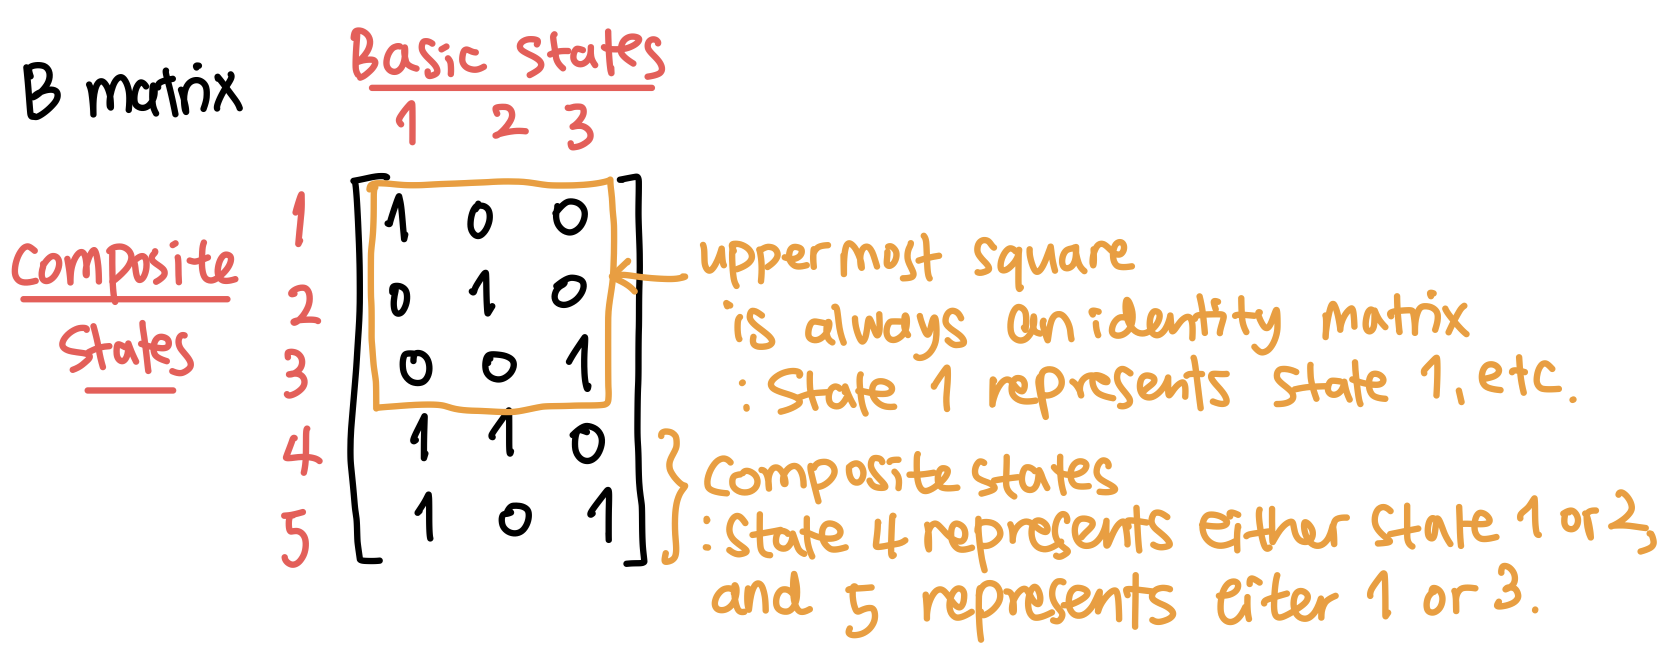 B matrix
Basic states
1 2 3
Composite
States
1 1 0 0
2 0 1 0
3 0 0 1
4 1 1 0
5 1 0 1
uppermost square
is always an identity matrix
: State 1 represents state 1, etc.
Composite states
: State 4 represents either state 1 or 2,
and 5 represents eiter 1 or 3.